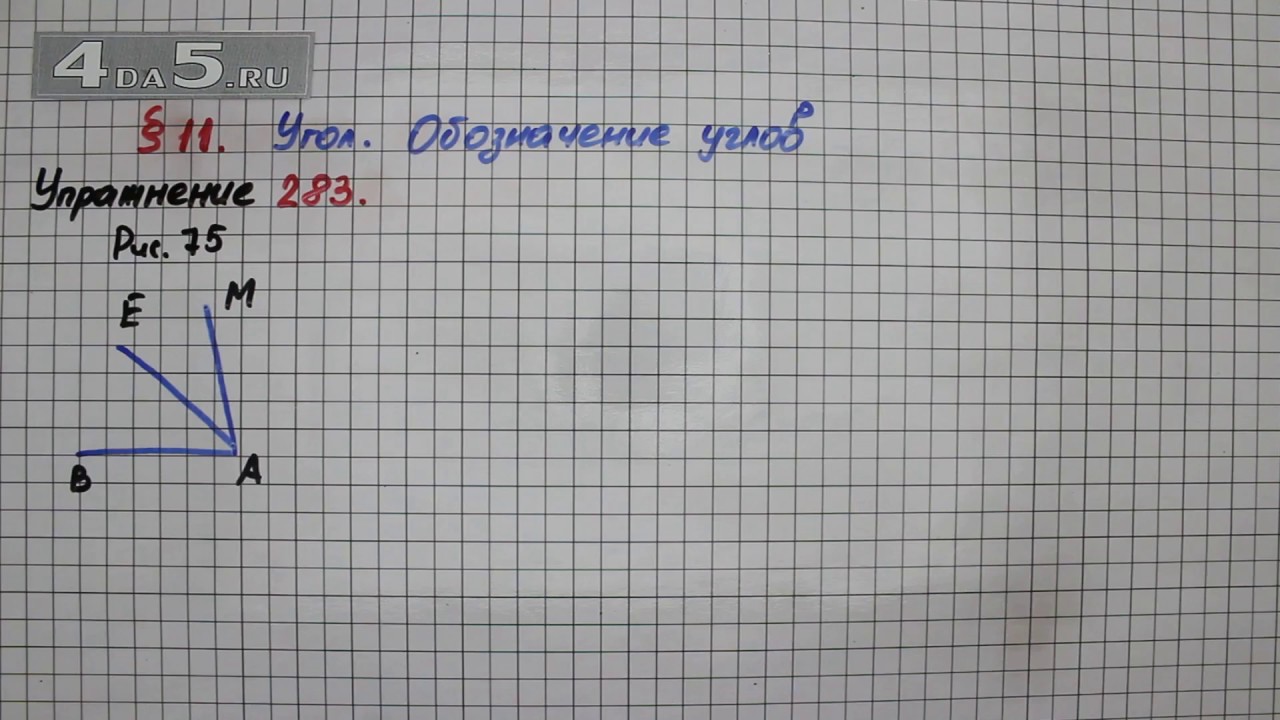 4DA5.RU
§ 11. Угол. Обозначение углов
Упражнение 283.
Рис. 75
E M
B A